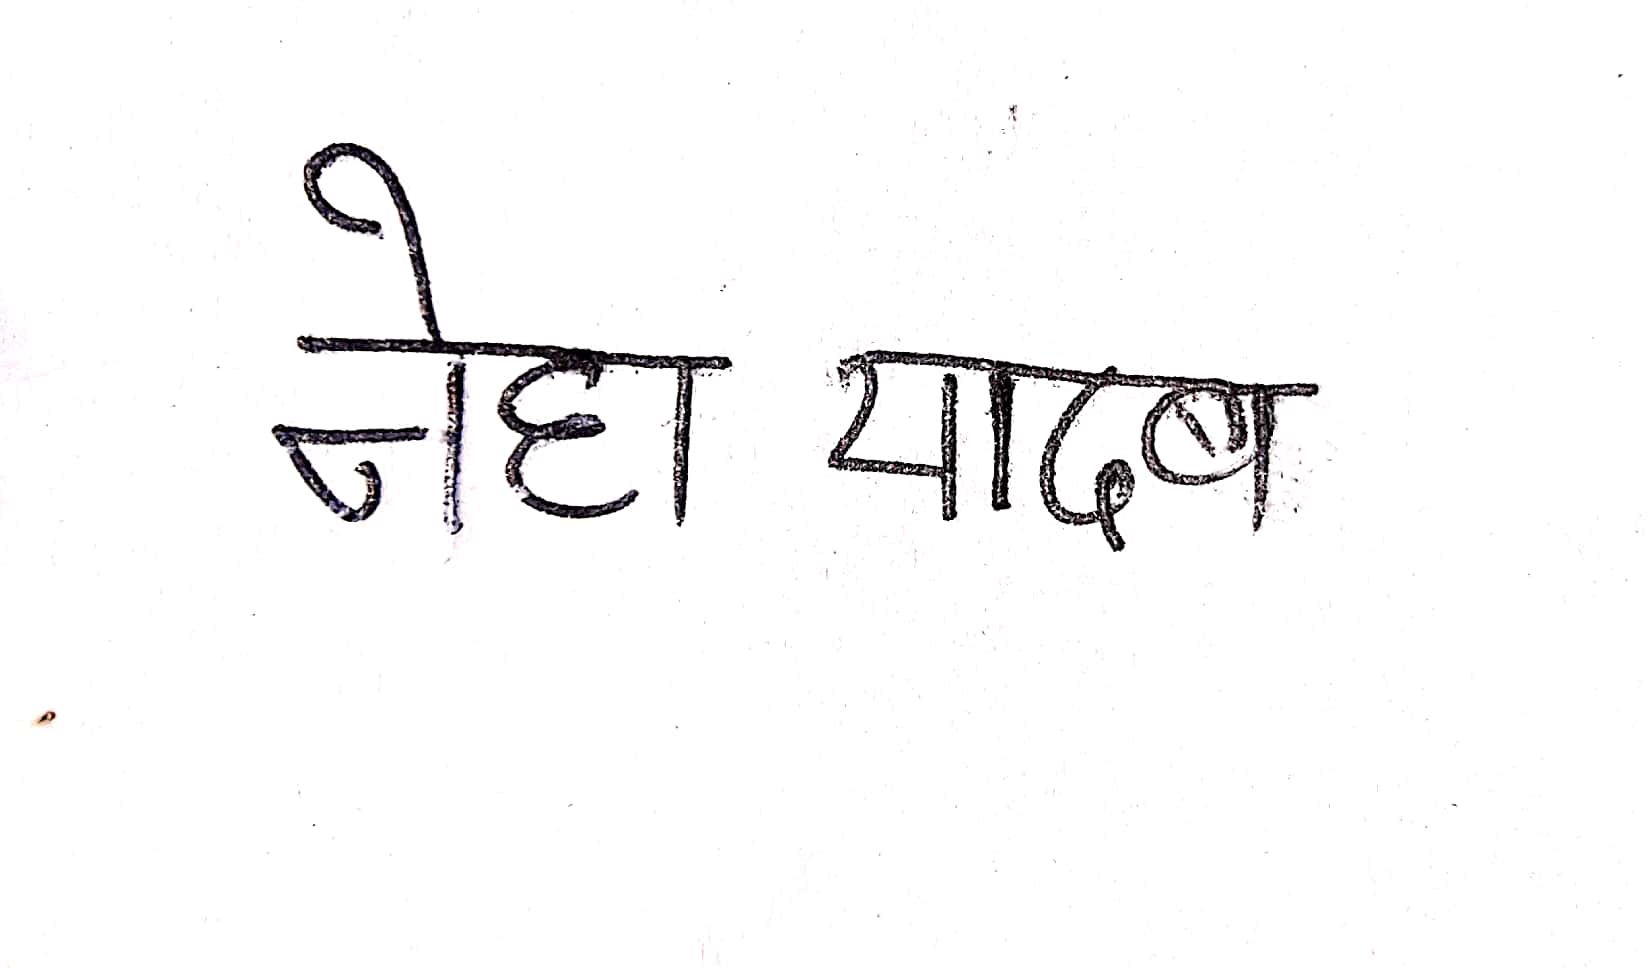 नेहा यादब